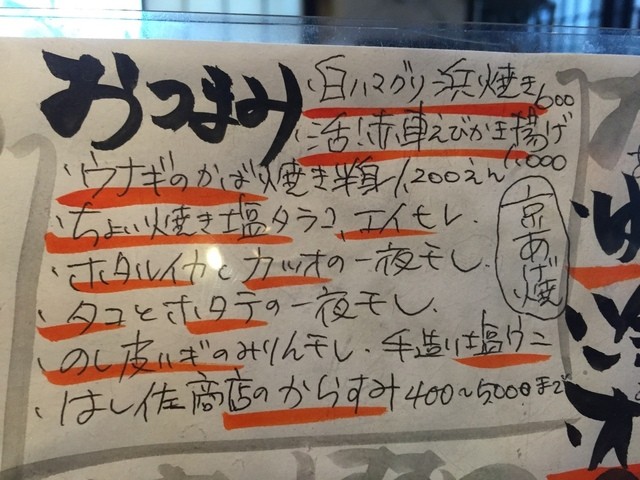 おつまみ
白ハマグリ浜焼き600
活!赤車えびかき揚げ
1,000
ウナギのかば焼き半身1,200えん
ちょい焼き塩タラコ、エイヒレ.
ホタルイカとカツオの一夜干し.
タコとホタテの一夜干し.
のし皮ハギのみりん干し.手造り塩ウニ
はし佐商店のからすみ400〜5,000まで
京あげ焼